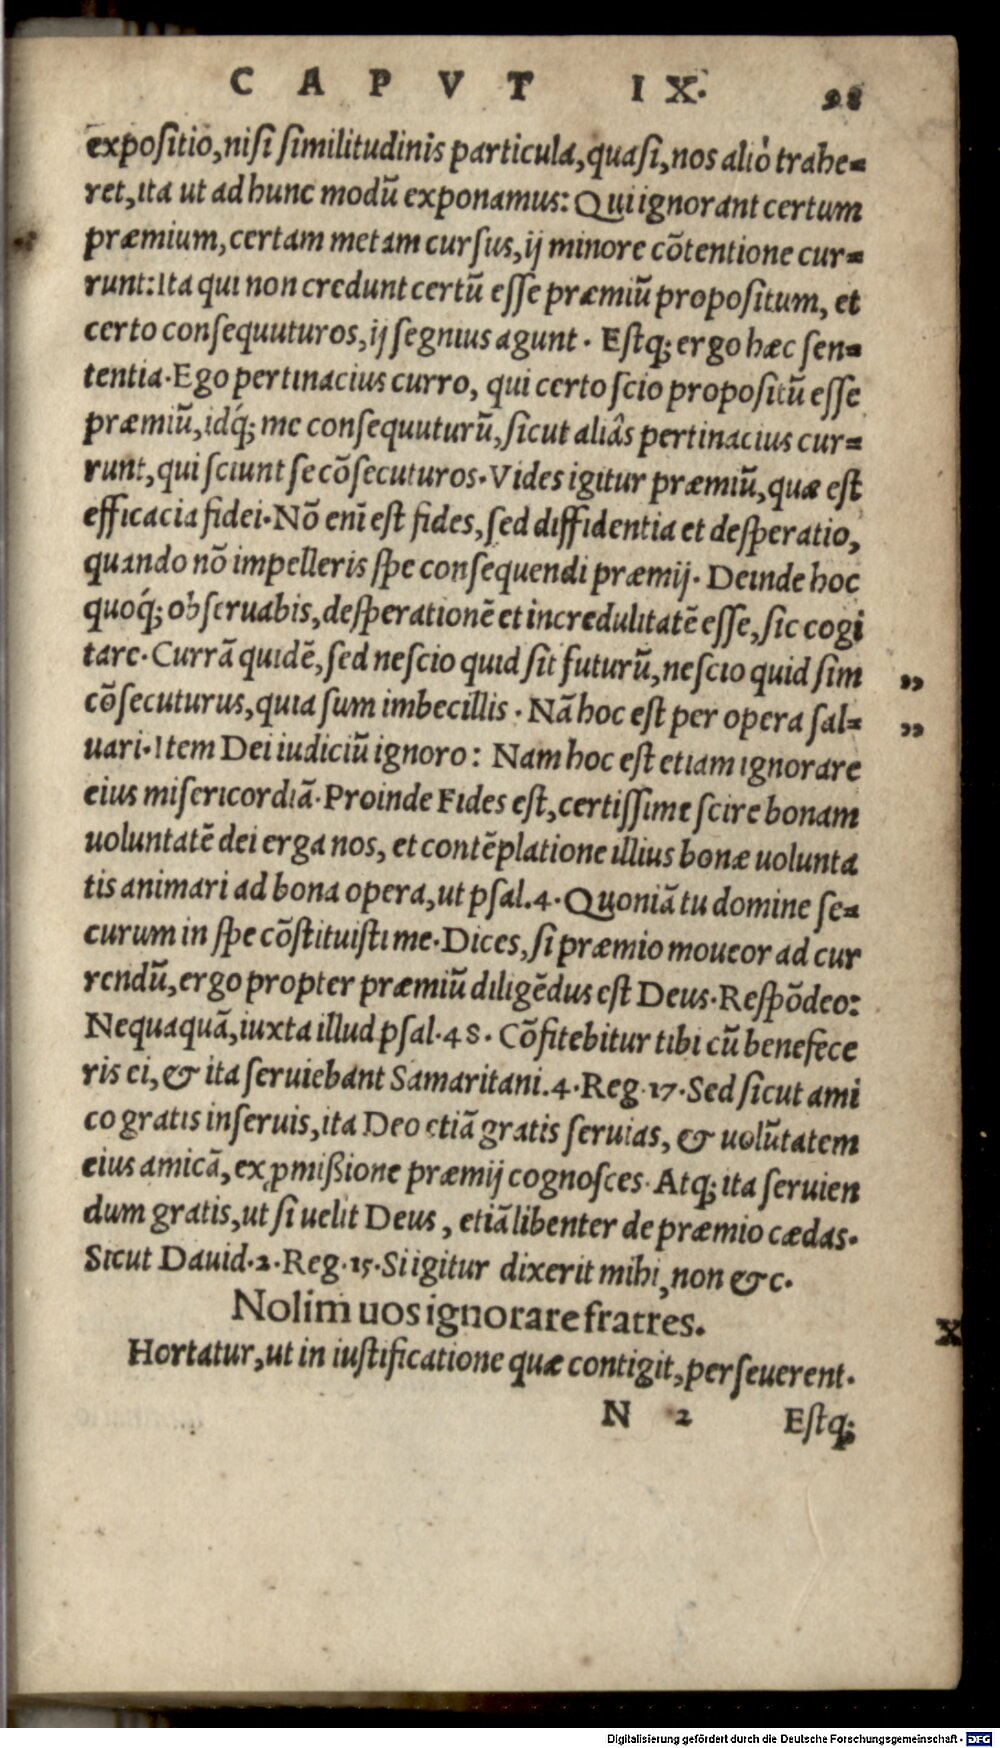 CAPVT IX. 98
expositio, nisi similitudinis particula, quasi, nos aliò trahe=
ret, ita ut ad hunc modū exponamus: Qui ignorant certum
præmium, certam metam cursus, ij minore cōtentione cur=
runt: Ita qui non credunt certū esse præmiū propositum, et
certo consequuturos, ij segnius agunt. Estq́; ergo hæc sen=
tentia. Ego pertinacius curro, qui certo scio propositū esse
præmiū, idq́; me consequuturū, sicut aliâs pertinacius cur=
runt, qui sciunt se cōsecuturos. Vides igitur præmiū, quæ est
efficacia fidei. Nō enī est fides, sed diffidentia et desperatio,
quando nō impelleris spe consequendi præmij. Deinde hoc
quoq́; obseruabis, desperationē et incredulitatē esse, sic cogi
tare. Currā quidē, sed nescio quid sit futurū, nescio quid sim ”
cōsecuturus, quia sum imbecillis. Nā hoc est per opera sal= ”
uari. Item Dei iudiciū ignoro: Nam hoc est etiam ignorare
eius misericordiā. Proinde Fides est, certissime scire bonam
uoluntatē dei erga nos, et contēplatione illius bonæ uolunta
tis animari ad bona opera, ut psal. 4. Quoniā tu domine se=
curum in spe cōstituisti me. Dices, si præmio moueor ad cur
rendū, ergo propter præmiū diligēdus est Deus. Respōdeo:
Nequaquā, iuxta illud psal. 48. Cōfitebitur tibi cū benefece
ris ei, & ita seruiebant Samaritani. 4. Reg. 17. Sed sicut ami
co gratis inseruis, ita Deo etiā gratis seruias, & uolūtatem
eius amicā, ex ꝓmißione præmij cognosces. Atq; ita seruien
dum gratis, ut si uelit Deus, etiā libenter de præmio cædas.
Sicut Dauid. 2. Reg. 15. Si igitur dixerit mihi, non &c.
Nolim uos ignorare fratres. X
Hortatur, ut in iustificatione quæ contigit, perseuerent.
N 2 Estq;
Digitalisierung gefördert durch die Deutsche Forschungsgemeinschaft - DFG